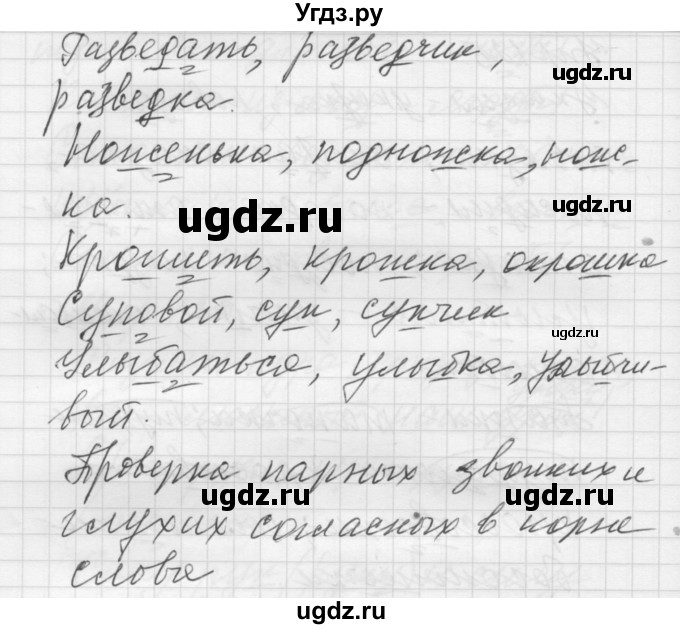 Угдз.ру
Разведать, разведчик,
ugdz.ru
разведка.
ugdz.ru
Ноженька, подножка, нож-
ка.
ugdz.ru
Крошить, крошка, окрошка
Суповой, суп, супчик
ugdz.ru
Улыбаться, улыбка, улыбчи-
вый.
Проверка парных звонких и
ugdz.ru
ugdz.ru
глухих согласных в корне
слова
ugdz.ru